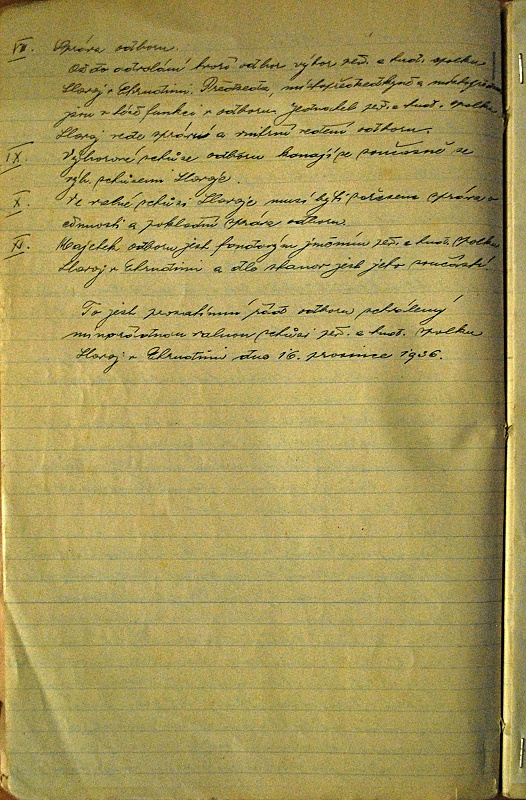 VIII. Správa odboru.
Až do odvolání tvoří odbor výbor pěv. a hud. spolku
Slavoj v Chrudimi. Předseda, místopředsedkyně a místopřed
jsou v téže funkci v odboru. Jednatel pěv. a hud. spolku
Slavoj vede správu a vnitřní vedení odboru.
IX. Výborové schůze odboru konají se současně se
výb. schůzemi Slavoje.
X. Ve valné schůzi Slavoje musí býti zpráva o
činnosti a pokladní zpráva odboru.
XI. Majetek odboru jest fondovým jměním pěv. a hud. spolku
Slavoj v Chrudimi a dle stanov jest jeho součástí.
To jest prozatímní řád odboru schválený
mimořádnou valnou schůzí pěv. a hud. spolku
Slavoj v Chrudimi dne 16. prosince 1936.